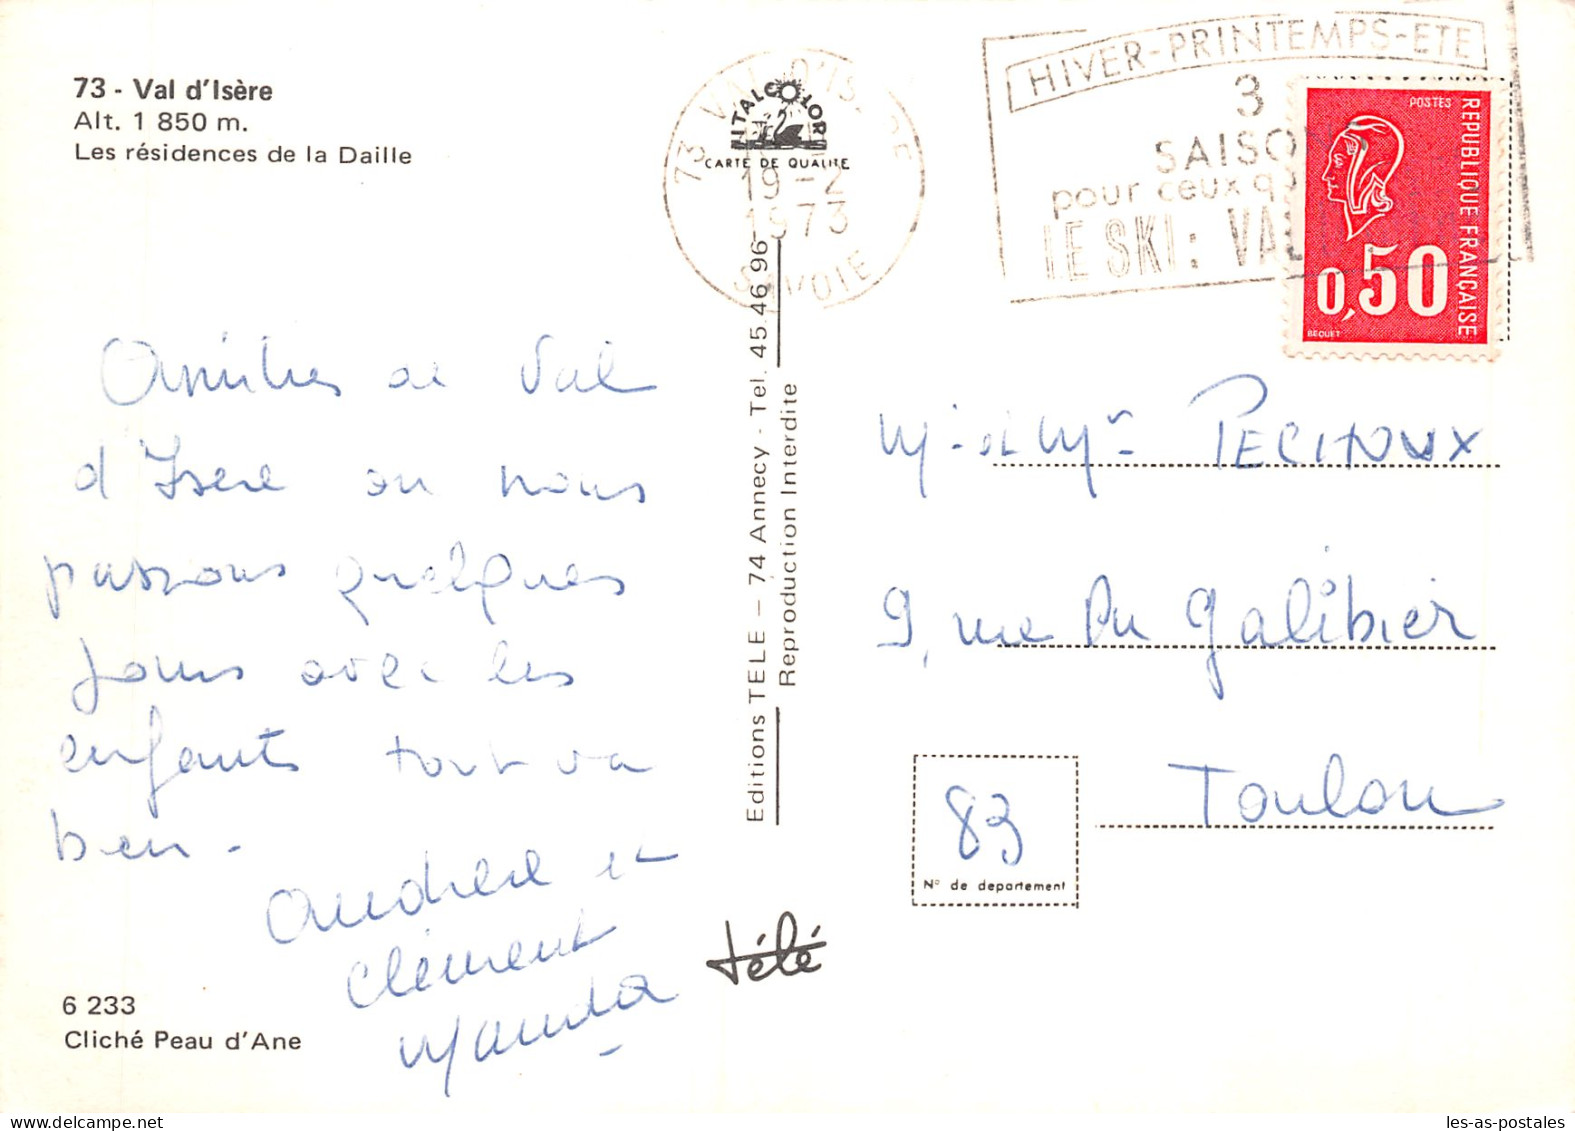 73 - Val d'Isère
Alt. 1 850 m.
Les résidences de la Daille
Amitiés de Val
d'Isère où nous
passons quelques
jours avec les
enfants tout va
bien.
et
Clément
6 233
Cliché Peau d'Ane
ITALCOLOR
CARTE DE QUALITE
73 VAL D'ISERE
19-2
1973
SAVOIE
Editions TELE – 74 Annecy - Tel. 45.46 96
Reproduction Interdite
télé
HIVER-PRINTEMPS-ETE
3
SAISONS
pour ceux q
LE SKI: VAL
POSTES
REPUBLIQUE FRANÇAISE
0,50
BEQUET
M. et Mme PECHOUX
9, rue du Galibier
Toulon
83
N° de departement
les-as-postales